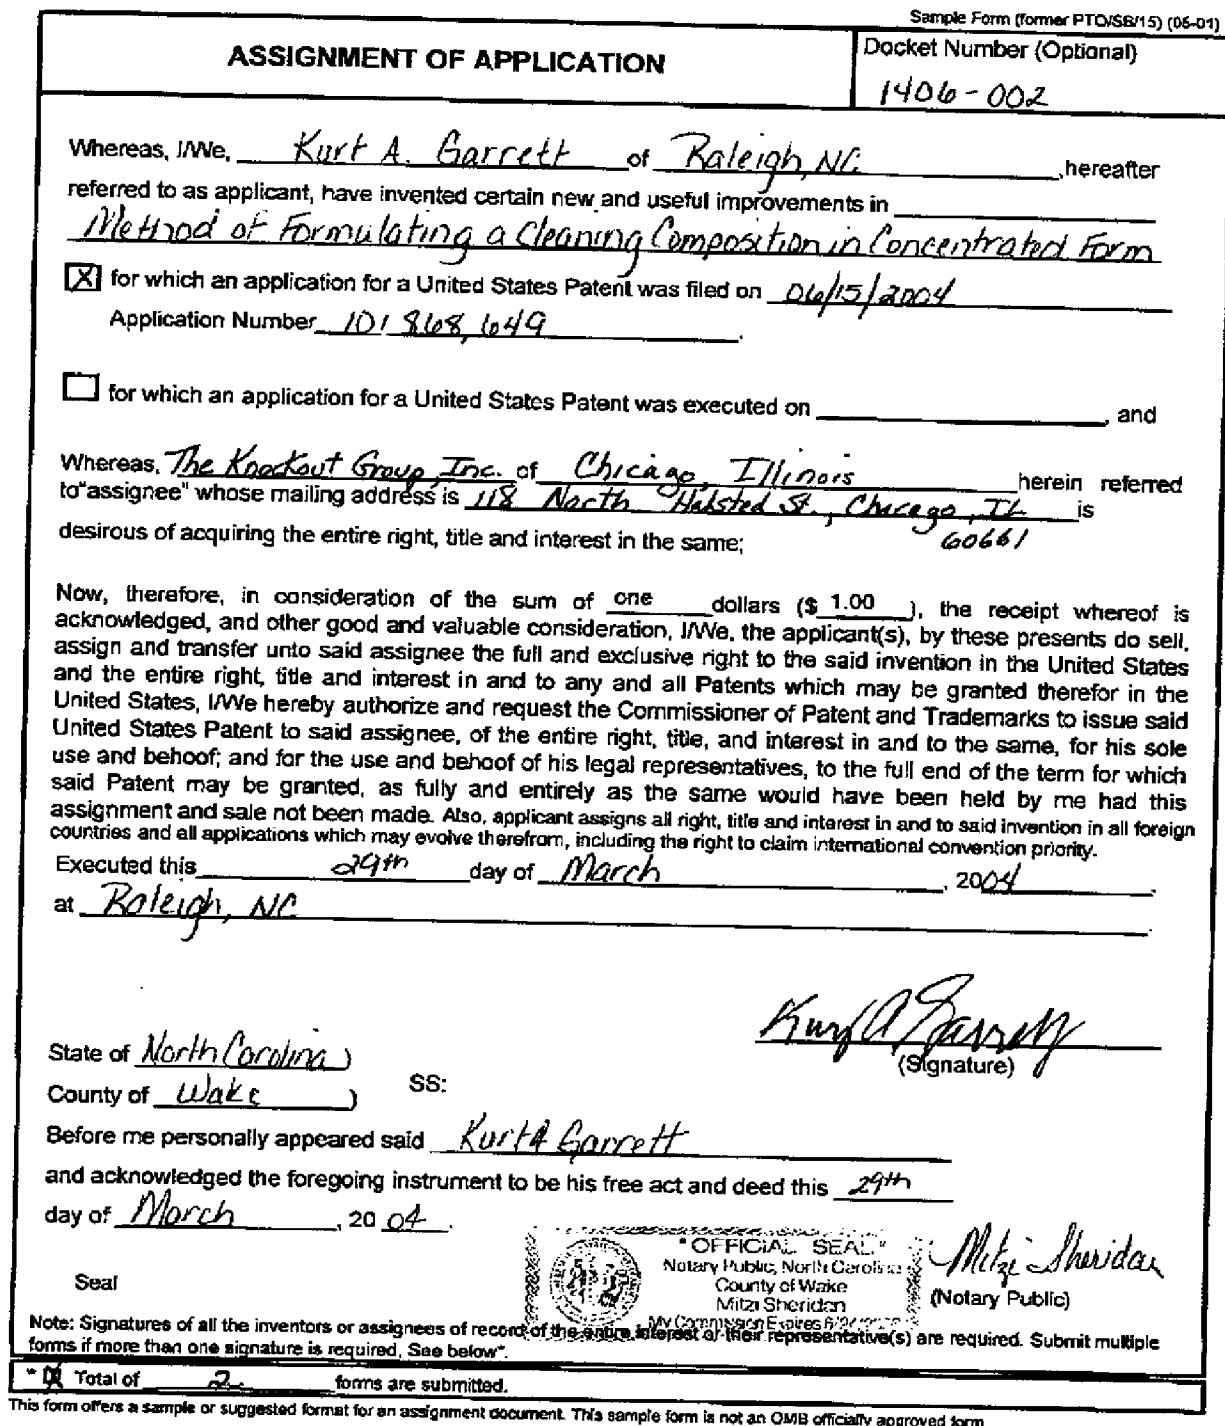 Sample Form (former PTO/SB/15) (06-01)
ASSIGNMENT OF APPLICATION
Docket Number (Optional)
1406-002
Whereas, I/We, Kurt A. Garrett of Raleigh, NC ,hereafter
referred to as applicant, have invented certain new and useful improvements in
Method of Formulating a Cleaning Composition in Concentrated Form
[X] for which an application for a United States Patent was filed on 06/15/2004
Application Number 10/868,649 .
for which an application for a United States Patent was executed on , and
Whereas, The Knockout Group, Inc. of Chicago, Illinois herein referred
to"assignee" whose mailing address is 118 North Halsted St., Chicago, IL is
60661
desirous of acquiring the entire right, title and interest in the same;
Now, therefore, in consideration of the sum of one dollars ($ 1.00 ), the receipt whereof is
acknowledged, and other good and valuable consideration, I/We, the applicant(s), by these presents do sell,
assign and transfer unto said assignee the full and exclusive right to the said invention in the United States
and the entire right, title and interest in and to any and all Patents which may be granted therefor in the
United States, I/We hereby authorize and request the Commissioner of Patent and Trademarks to issue said
United States Patent to said assignee, of the entire right, title, and interest in and to the same, for his sole
use and behoof; and for the use and behoof of his legal representatives, to the full end of the term for which
said Patent may be granted, as fully and entirely as the same would have been held by me had this
assignment and sale not been made. Also, applicant assigns all right, title and interest in and to said invention in all foreign
countries and all applications which may evolve therefrom, including the right to claim international convention priority.
Executed this 29th day of March , 2004 .
at Raleigh, NC .
Kurt A Garrett
(Signature)
State of North Carolina )
SS:
County of Wake )
Before me personally appeared said Kurt A Garrett
and acknowledged the foregoing instrument to be his free act and deed this 29th
day of March , 20 04 .
"OFFICIAL SEAL"
Notary Public, North Carolina
County of Wake
Mitzi Sheridan
My Commission Expires
Mitzi Sheridan
(Notary Public)
Seal
Note: Signatures of all the inventors or assignees of record of the entire interest or their representative(s) are required. Submit multiple
forms if more than one signature is required, See below*.
* [X] Total of 2 forms are submitted.
This form offers a sample or suggested format for an assignment document. This sample form is not an OMB officially approved form